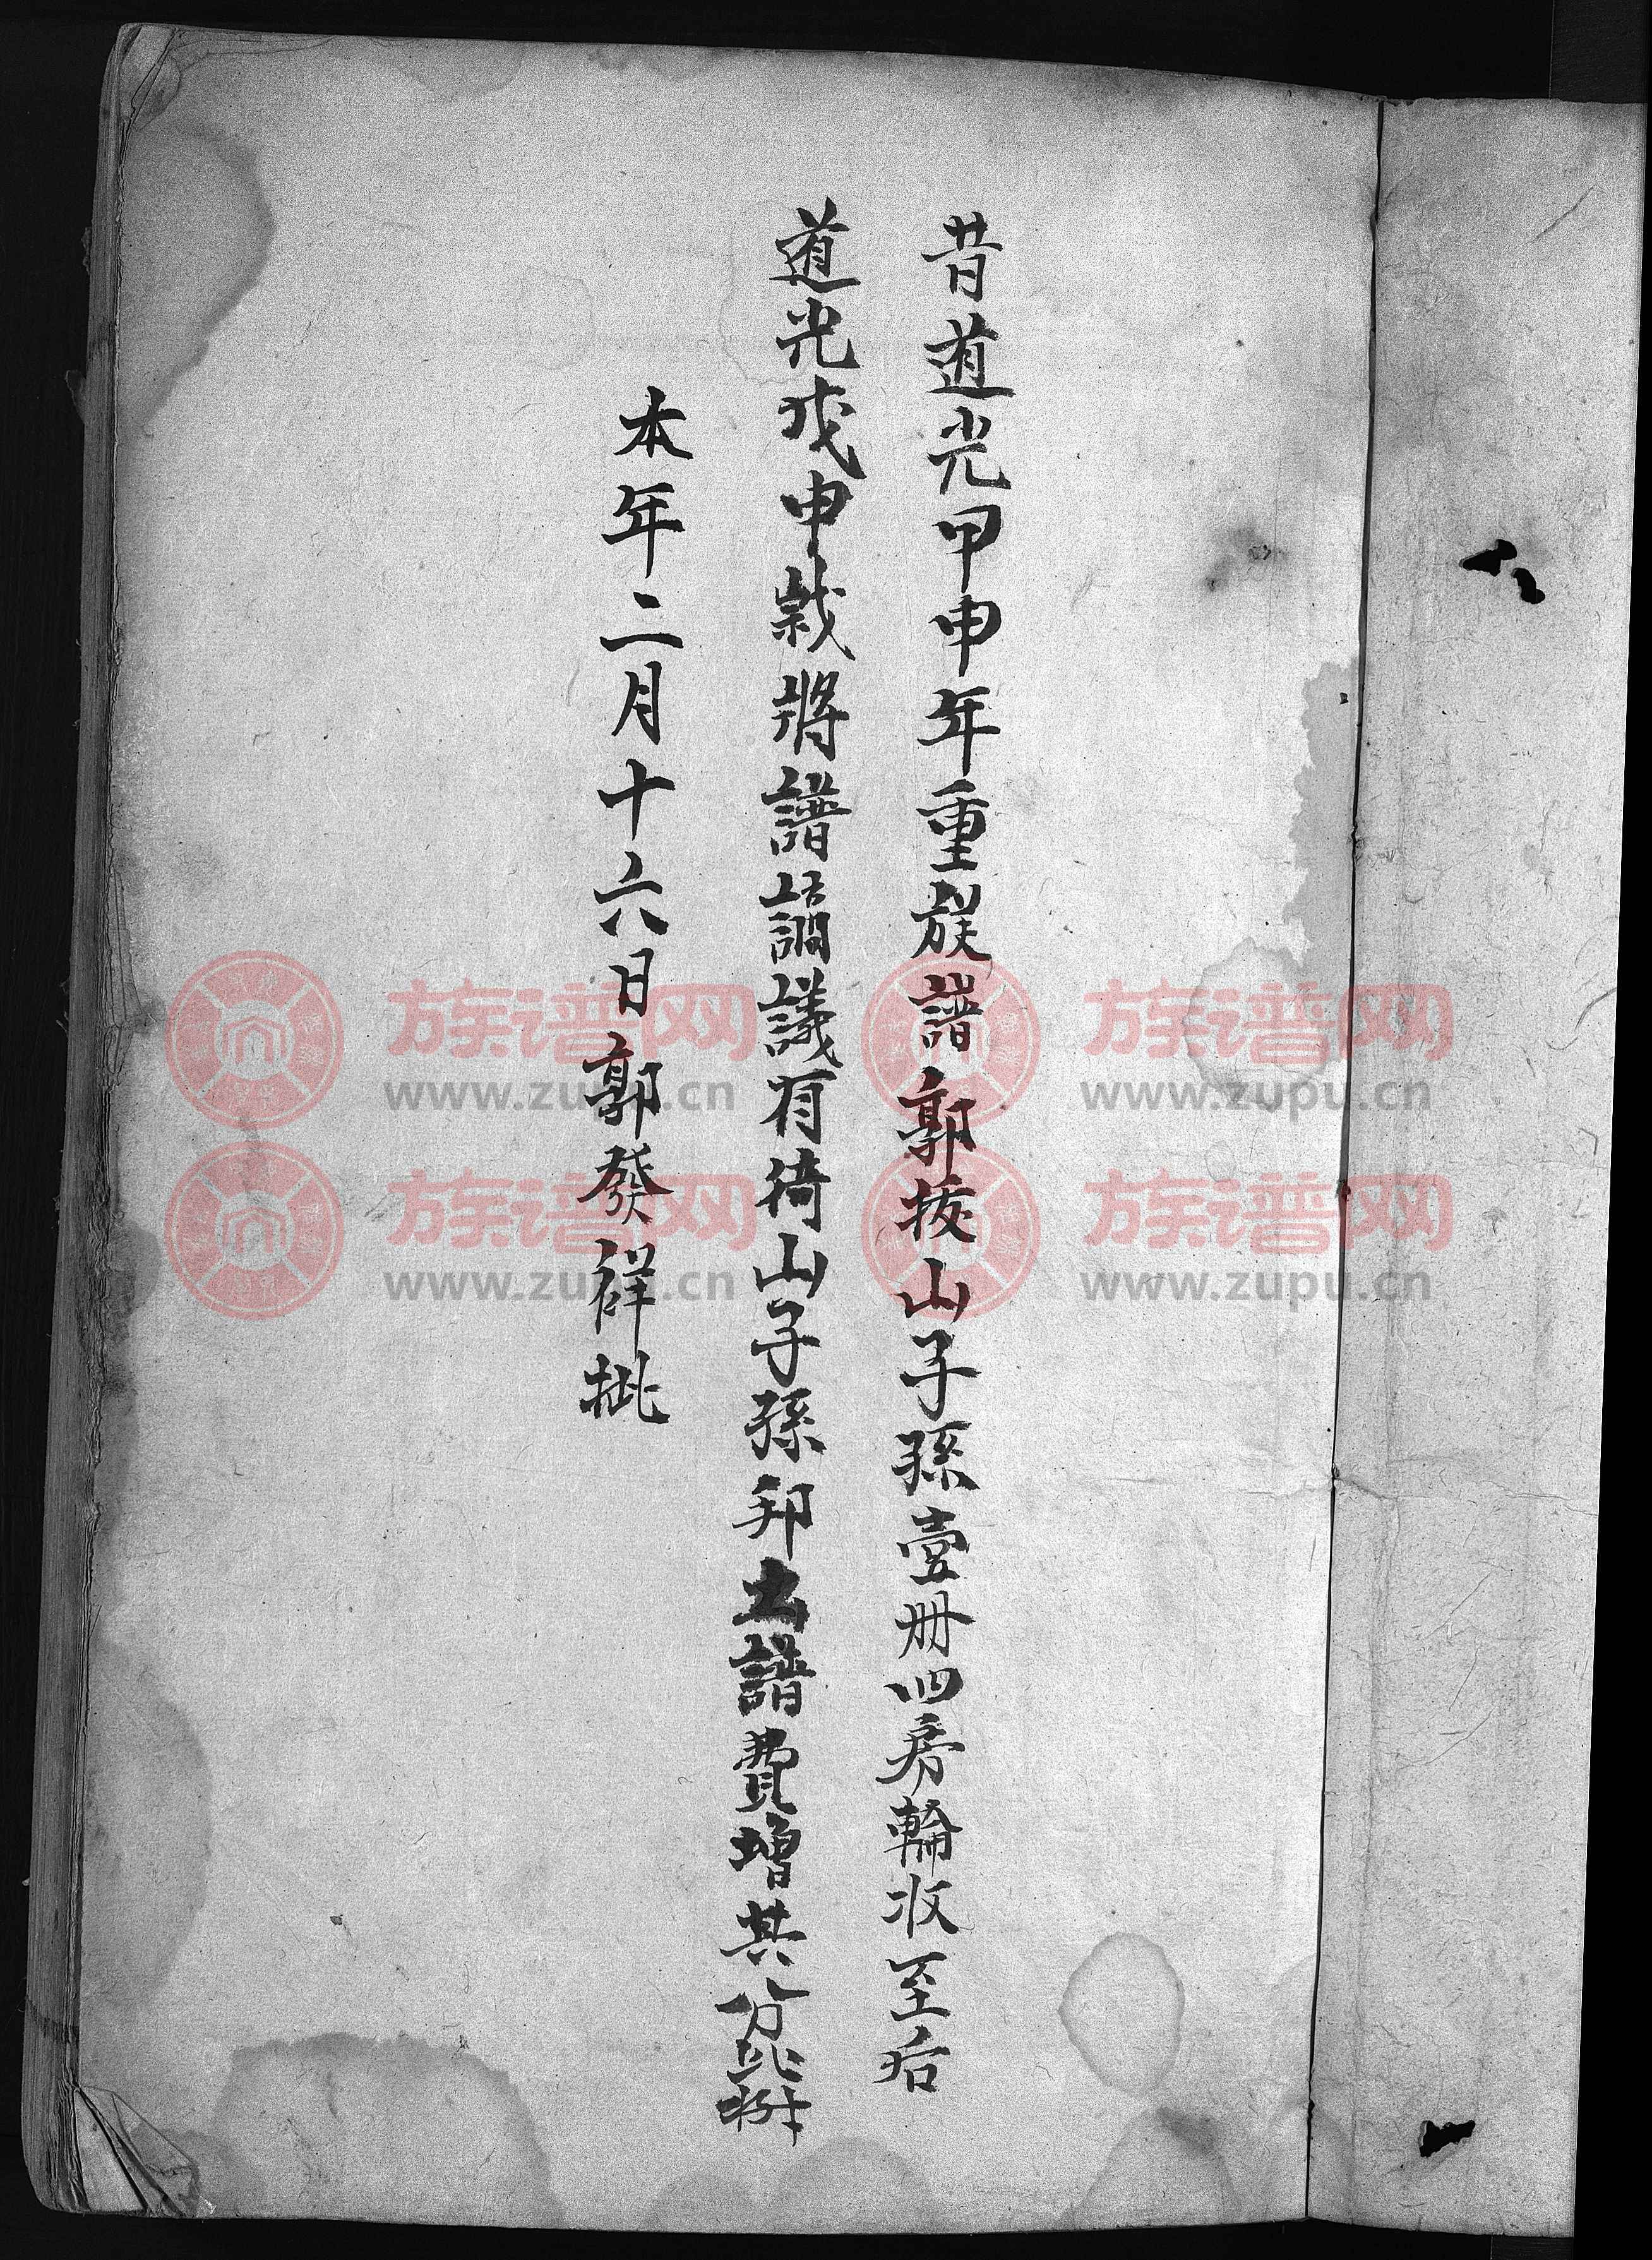 昔道光甲申年重族譜郭拔山子孫壹册四房輪收至后
道光戊申歲將譜調議有倚山子孫邦出譜費增其
本年二月十六日郭發祥批
族谱网 www.zupu.cn
族谱网 www.zupu.cn
族谱网 www.zupu.cn
族谱网 www.zupu.cn